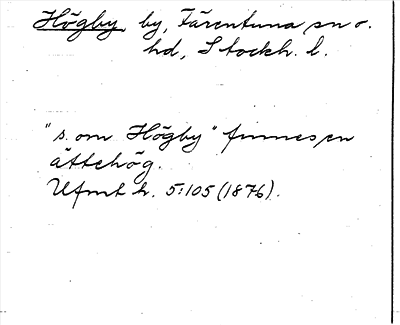 Högby by, Färentuna sn o.
hd, Stockh. l.
"s. om Högby" finnes en
ättehög.
Ufmt h. 5:105 (1876).